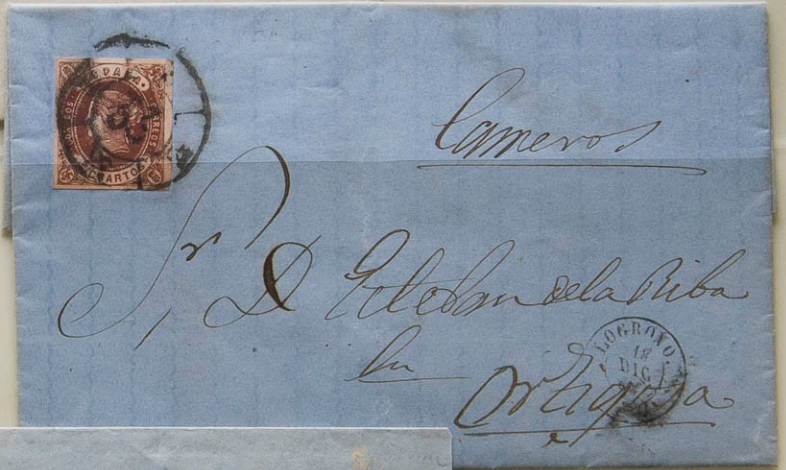 ESPAÑA
CUARTOS
Cameros
Sr. D. Esteban de la Riba
en
Ortigosa
LOGROÑO.
18
DIC